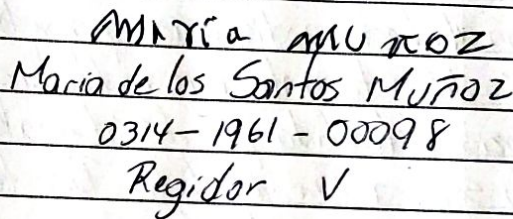 María Muñoz
Maria de los Santos Muñoz
0314-1961-00098
Regidor V